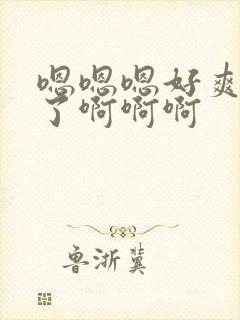 嗯嗯嗯好爽
了啊啊啊
鲁浙冀